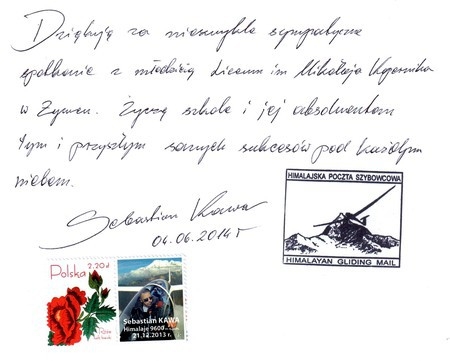 Dziękuję za niezwykle sympatyczne
spotkanie z młodzieżą Liceum im Mikołaja Kopernika
w Żywcu. Życzę szkole i jej absolwentom
tym i przyszłym samych sukcesów pod każdym
niebem.
Sebastian Kawa
04.06.2014 r
HIMALAJSKA POCZTA SZYBOWCOWA
HIMALAYAN GLIDING MAIL
Polska
2,20 zł
Róża
Sebastian KAWA
Himalaje 9600
21.12.2013 r.